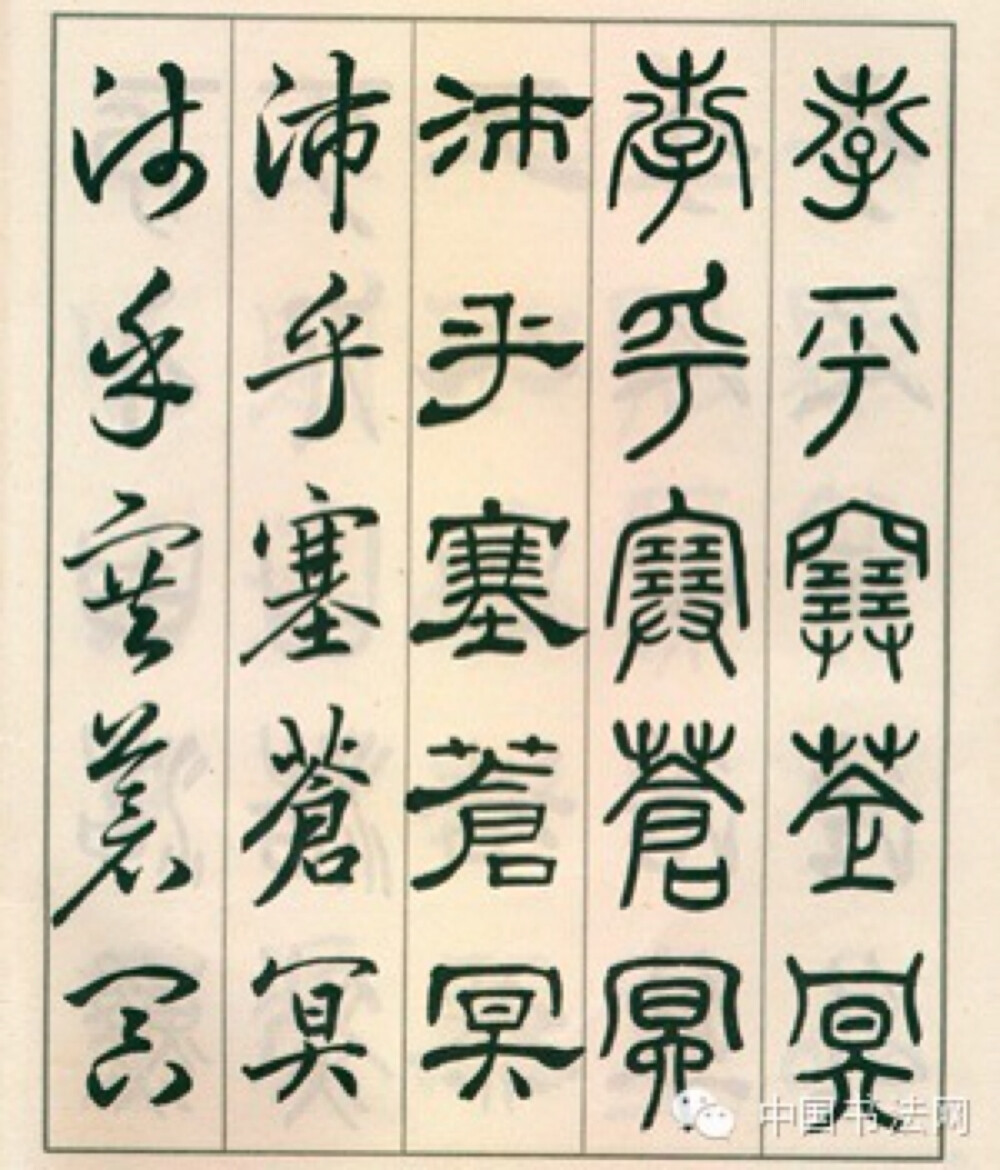 孛乎塞蒼冥
孛乎塞蒼冥
沛乎塞蒼冥
沛乎塞蒼冥
沛乎塞蒼冥
中国书法网